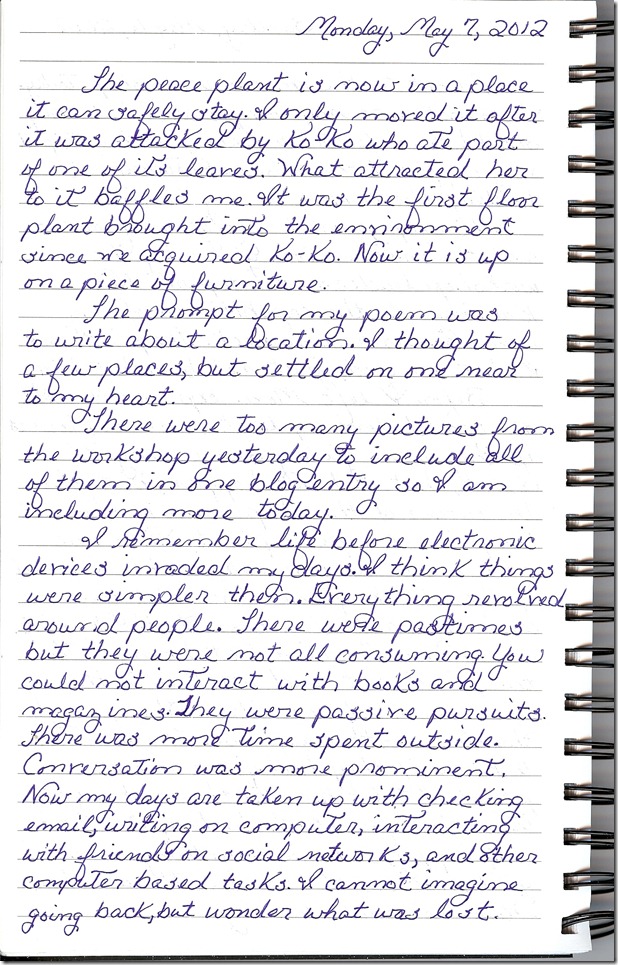 Monday, May 7, 2012
The peace plant is now in a place
it can safely stay. I only moved it after
it was attacked by Ko-Ko who ate part
of one of its leaves. What attracted her
to it baffles me. It was the first floor
plant brought into the environment
since we acquired Ko-Ko. Now it is up
on a piece of furniture.
The prompt for my poem was
to write about a location. I thought of
a few places, but settled on one near
to my heart.
There were too many pictures from
the workshop yesterday to include all
of them in one blog entry so I am
including more today.
I remember life before electronic
devices invaded my days. I think things
were simpler then. Everything revolved
around people. There were pastimes
but they were not all consuming. You
could not interact with books and
magazines. They were passive pursuits.
There was more time spent outside.
Conversation was more prominent.
Now my days are taken up with checking
email, writing on computer, interacting
with friends on social networks, and other
computer based tasks. I cannot imagine
going back, but wonder what was lost.